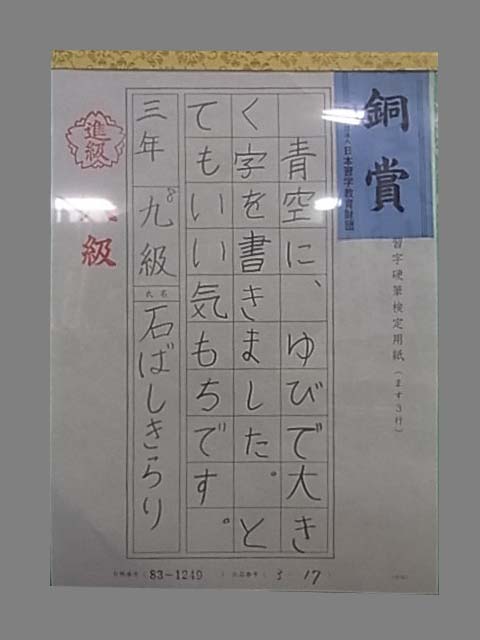 銅賞
日本習字教育財団
習字硬筆検定用紙(ます3行)
青空に、ゆびで大き
く字を書きました。と
てもいい気もちです。
三年 九級 氏名 石ばしきらり
進級
級
83-1249
3 - 17